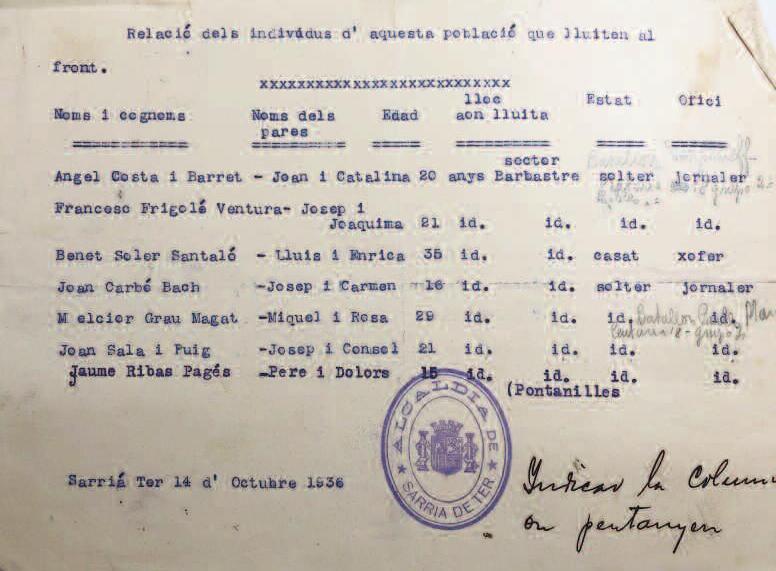 Relació dels indivídus d' aquesta població que lluiten al
front.
xxxxxxxxxxxxxxxxxxxxxxxxxxx
Noms i cognoms Noms dels pares Edad lloc aon lluita Estat Ofici
Angel Costa i Barret - Joan i Catalina 20 anys sector Barbastre solter jornaler
Francesc Frigolé Ventura- Josep i
Joaquima 21 id. id. id. id.
Benet Soler Santaló - Lluis i Enrica 35 id. id. casat xofer
Joan Carbó Bach -Josep i Carmen - 16 id. id. solter jornaler
M elcior Grau Magat -Miquel i Rosa 29 id. id. id. id.
Batallon
Centuria 8 - grupo
Joan Sala i Puig -Josep i Consol 21 id. id. id. id.
Jaume Ribas Pagés -Pere i Dolors 15 id. id. id. id.
(Pontanilles
ALCALDIA DE
SARRIA DE TER
Sarriá Ter 14 d' Octubre 1936
Indicar la column
on pentanyen